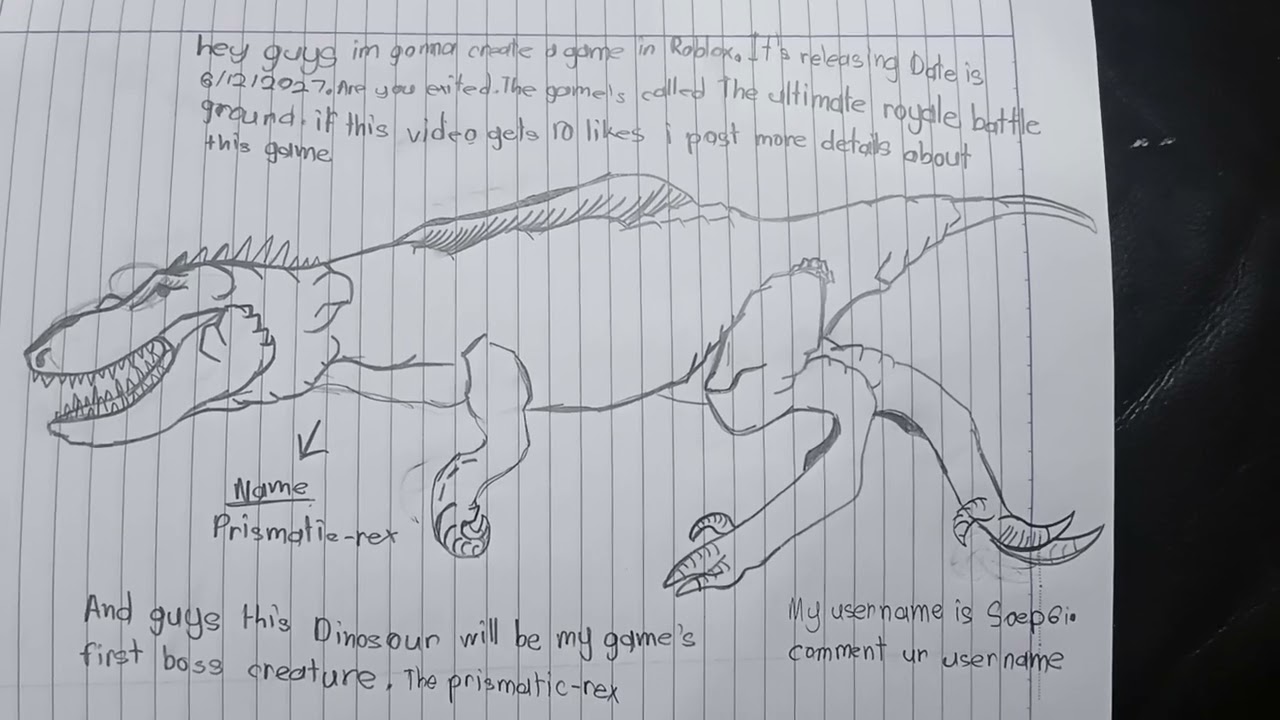 hey guys im gonna create a game in Roblox. It's releasing Date is
6/12/2027. Are you exited. The game's called The ultimate royale battle
ground. if this video gets 10 likes i post more details about
this game
Name
Prismatic-rex
And guys this Dinosaur will be my game's
first boss creature. The prismatic-rex
My username is Soep6io
comment ur username